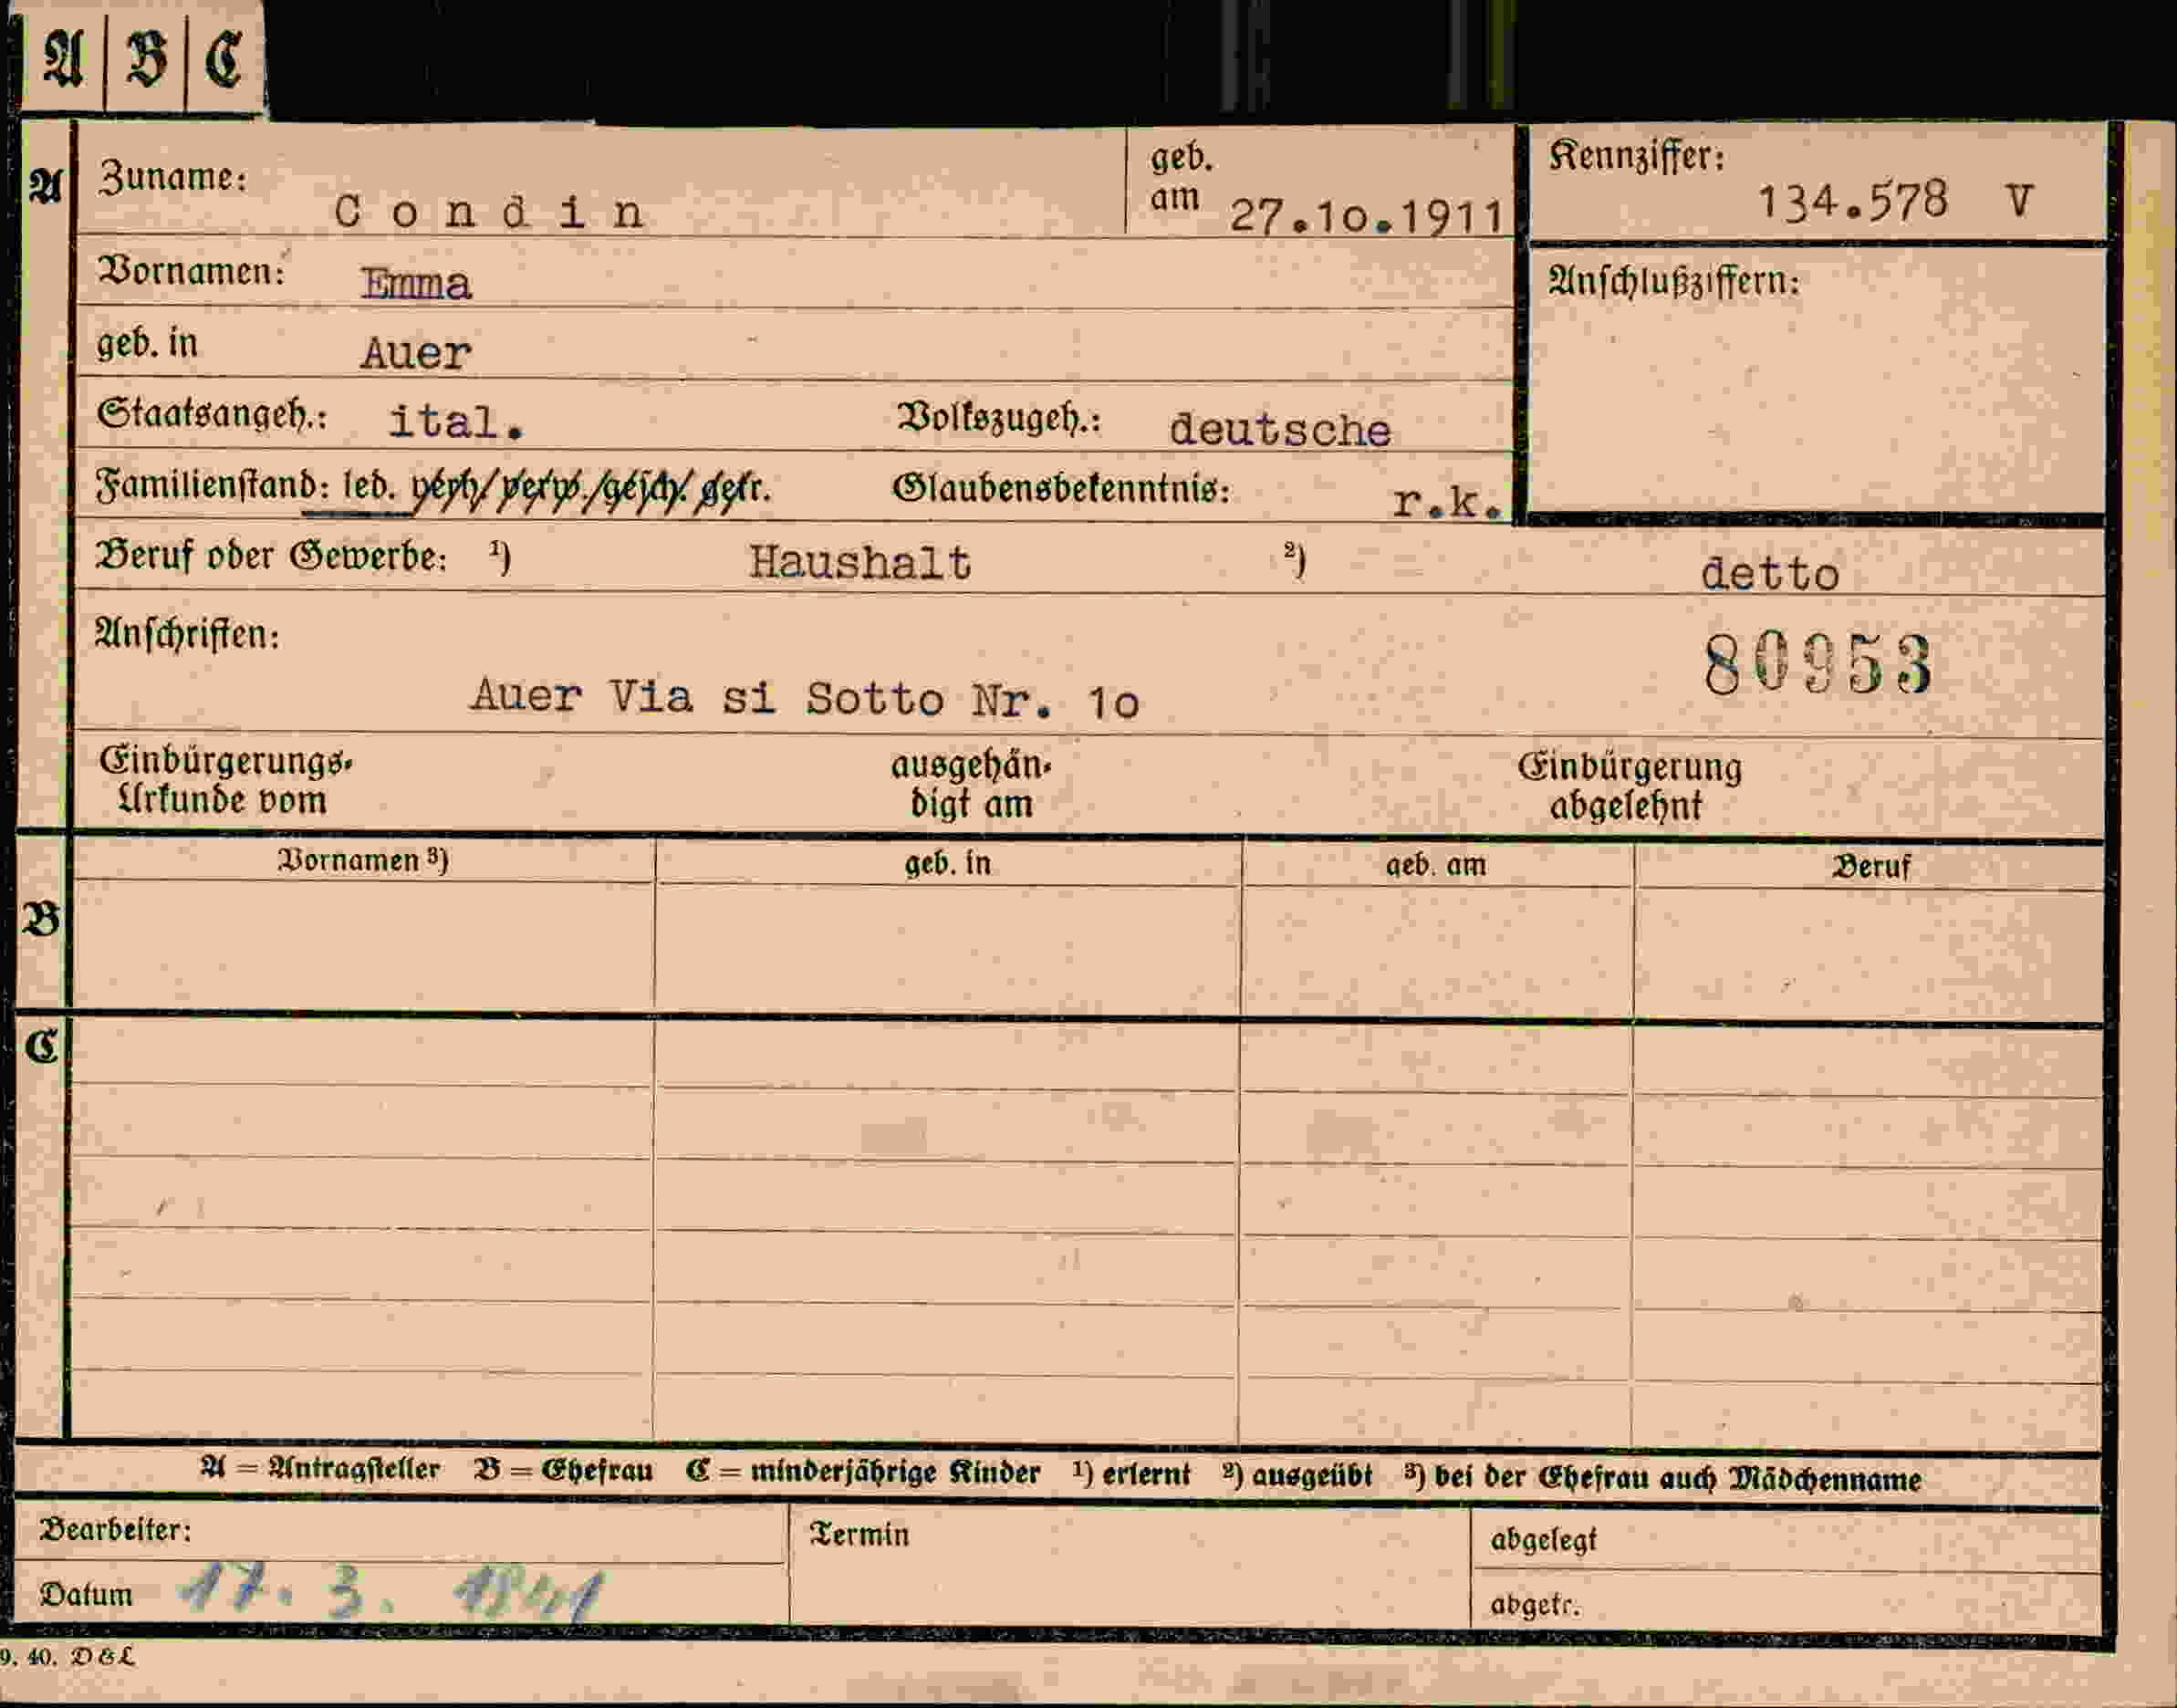 A | B | C
A
Zuname: Condin
geb. am 27.10.1911
Kennziffer: 134.578 V
Vornamen: Emma
Anschlußziffern:
geb. in Auer
Staatsangeh.: ital. Volkszugeh.: deutsche
Familienstand: led. verh/verw./gesch. getr. Glaubensbekenntnis: r.k.
Beruf oder Gewerbe: ¹) Haushalt ²) detto
Anschriften:
80953
Auer Via si Sotto Nr. 10
Einbürgerungs- ausgehän- Einbürgerung
Urkunde vom digt am abgelehnt
Vornamen ³) geb. in geb. am Beruf
B
C
A = Antragsteller B = Ehefrau C = minderjährige Kinder ¹) erlernt ²) ausgeübt ³) bei der Ehefrau auch Mädchenname
Bearbeiter: Termin abgelegt
Datum 17. 3. 1941 abgetr.
9. 40. D&L